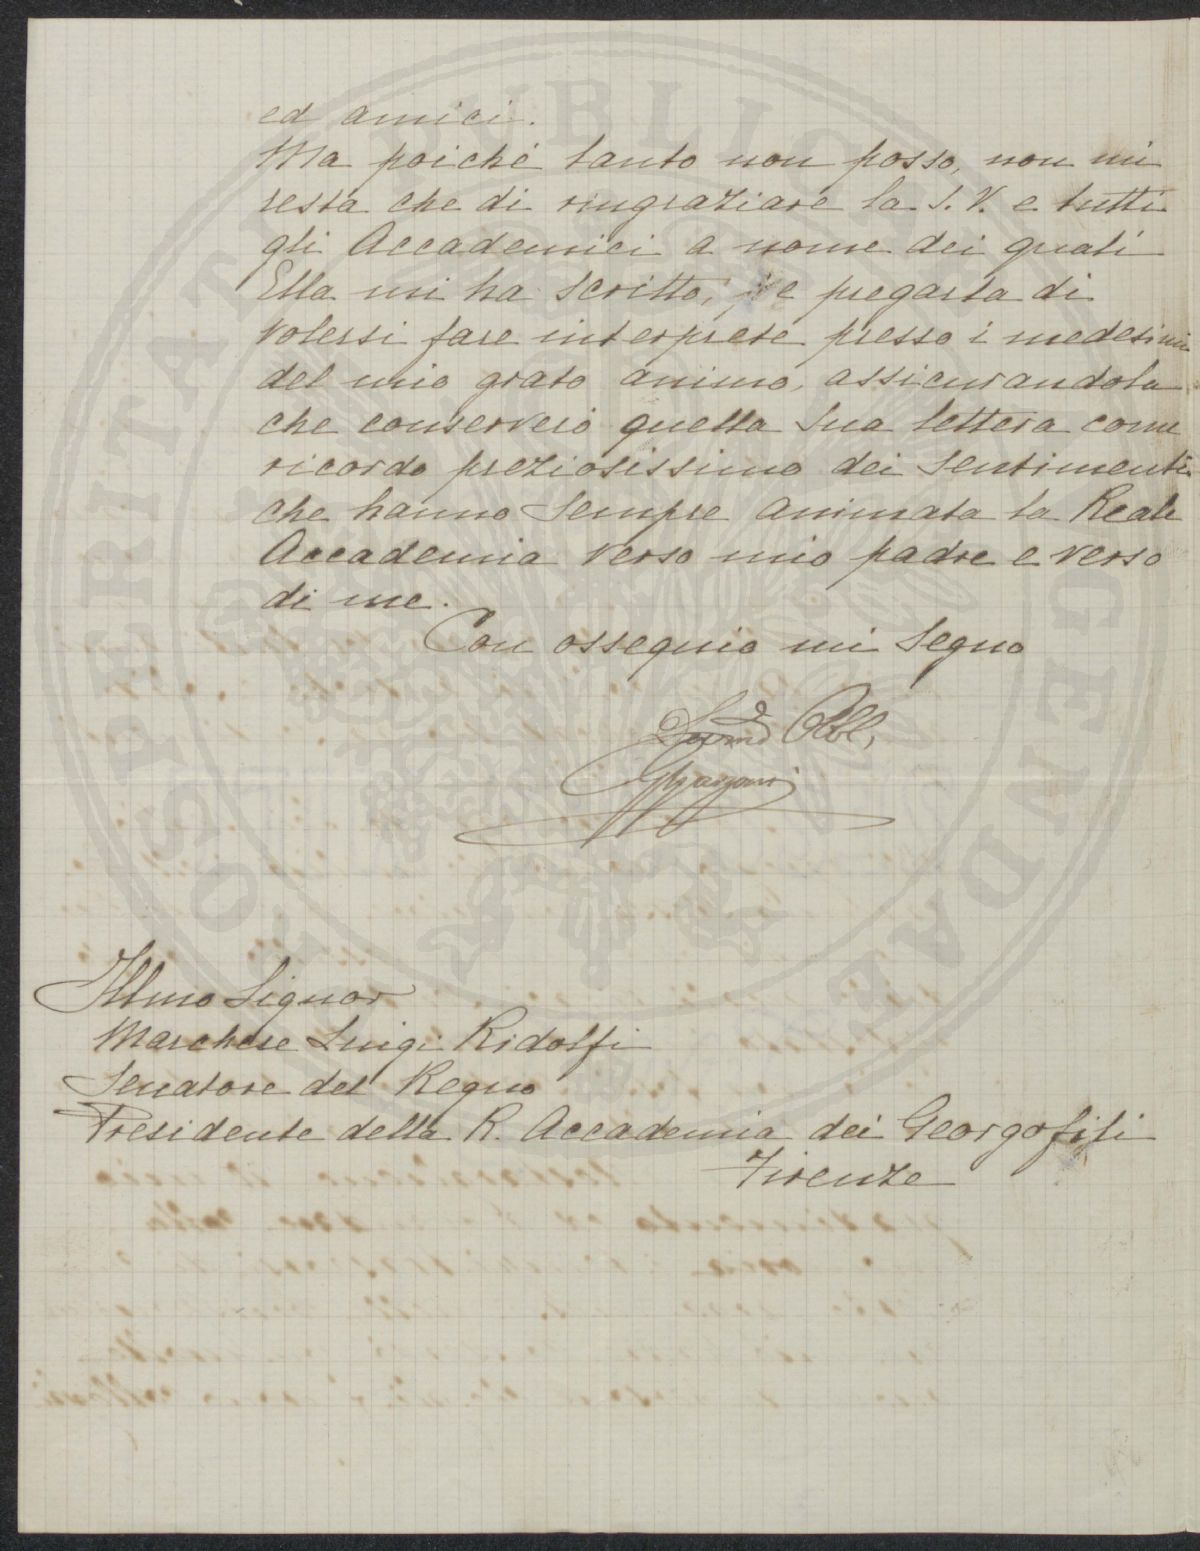 ed amici.
Ma poiché tanto non posso, non mi
resta che di ringraziare la S. V. e tutti
gli Accademici a nome dei quali
Ella mi ha scritto, e pregarla di
volersi fare interprete presso i medesimi
del mio grato animo, assicurandola
che conserverò quella Sua lettera come
ricordo preziosissimo dei sentimenti
che hanno sempre animata la Reale
Accademia verso mio padre e verso
di me.
Con ossequio mi segno
Obbl,
Illmo Signor
Marchese Luigi Ridolfi
Senatore del Regno
Presidente della R. Accademia dei Georgofili
Firenze
PROSPERITATI PUBLICAE AUGENDAE